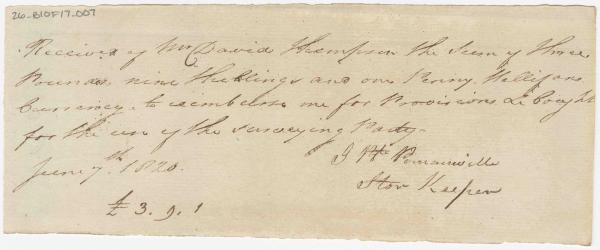 26-B10F17-007
Received of Mr David Thompson the Sum of three
Pounds nine Shillings and one Penny Hallifax
Currency to reimburse me for Provisions &c bought
for the use of the Surveying Party -
June 7th 1820.
J Bte Pomainville
Stor Keeper
£ 3. 9. 1